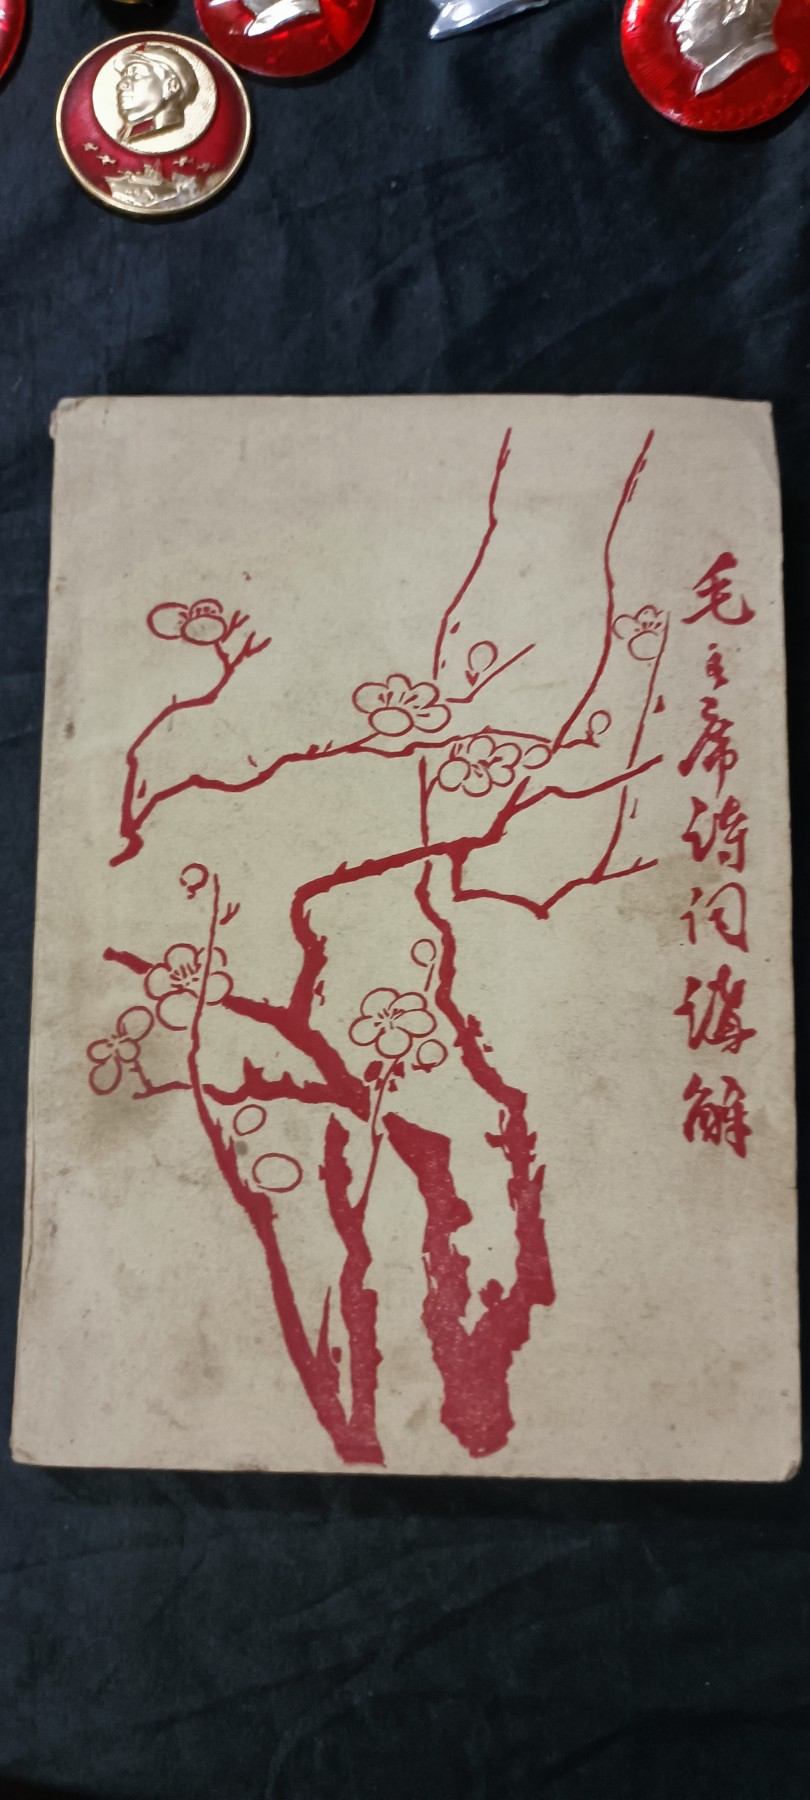 毛主席诗词讲解